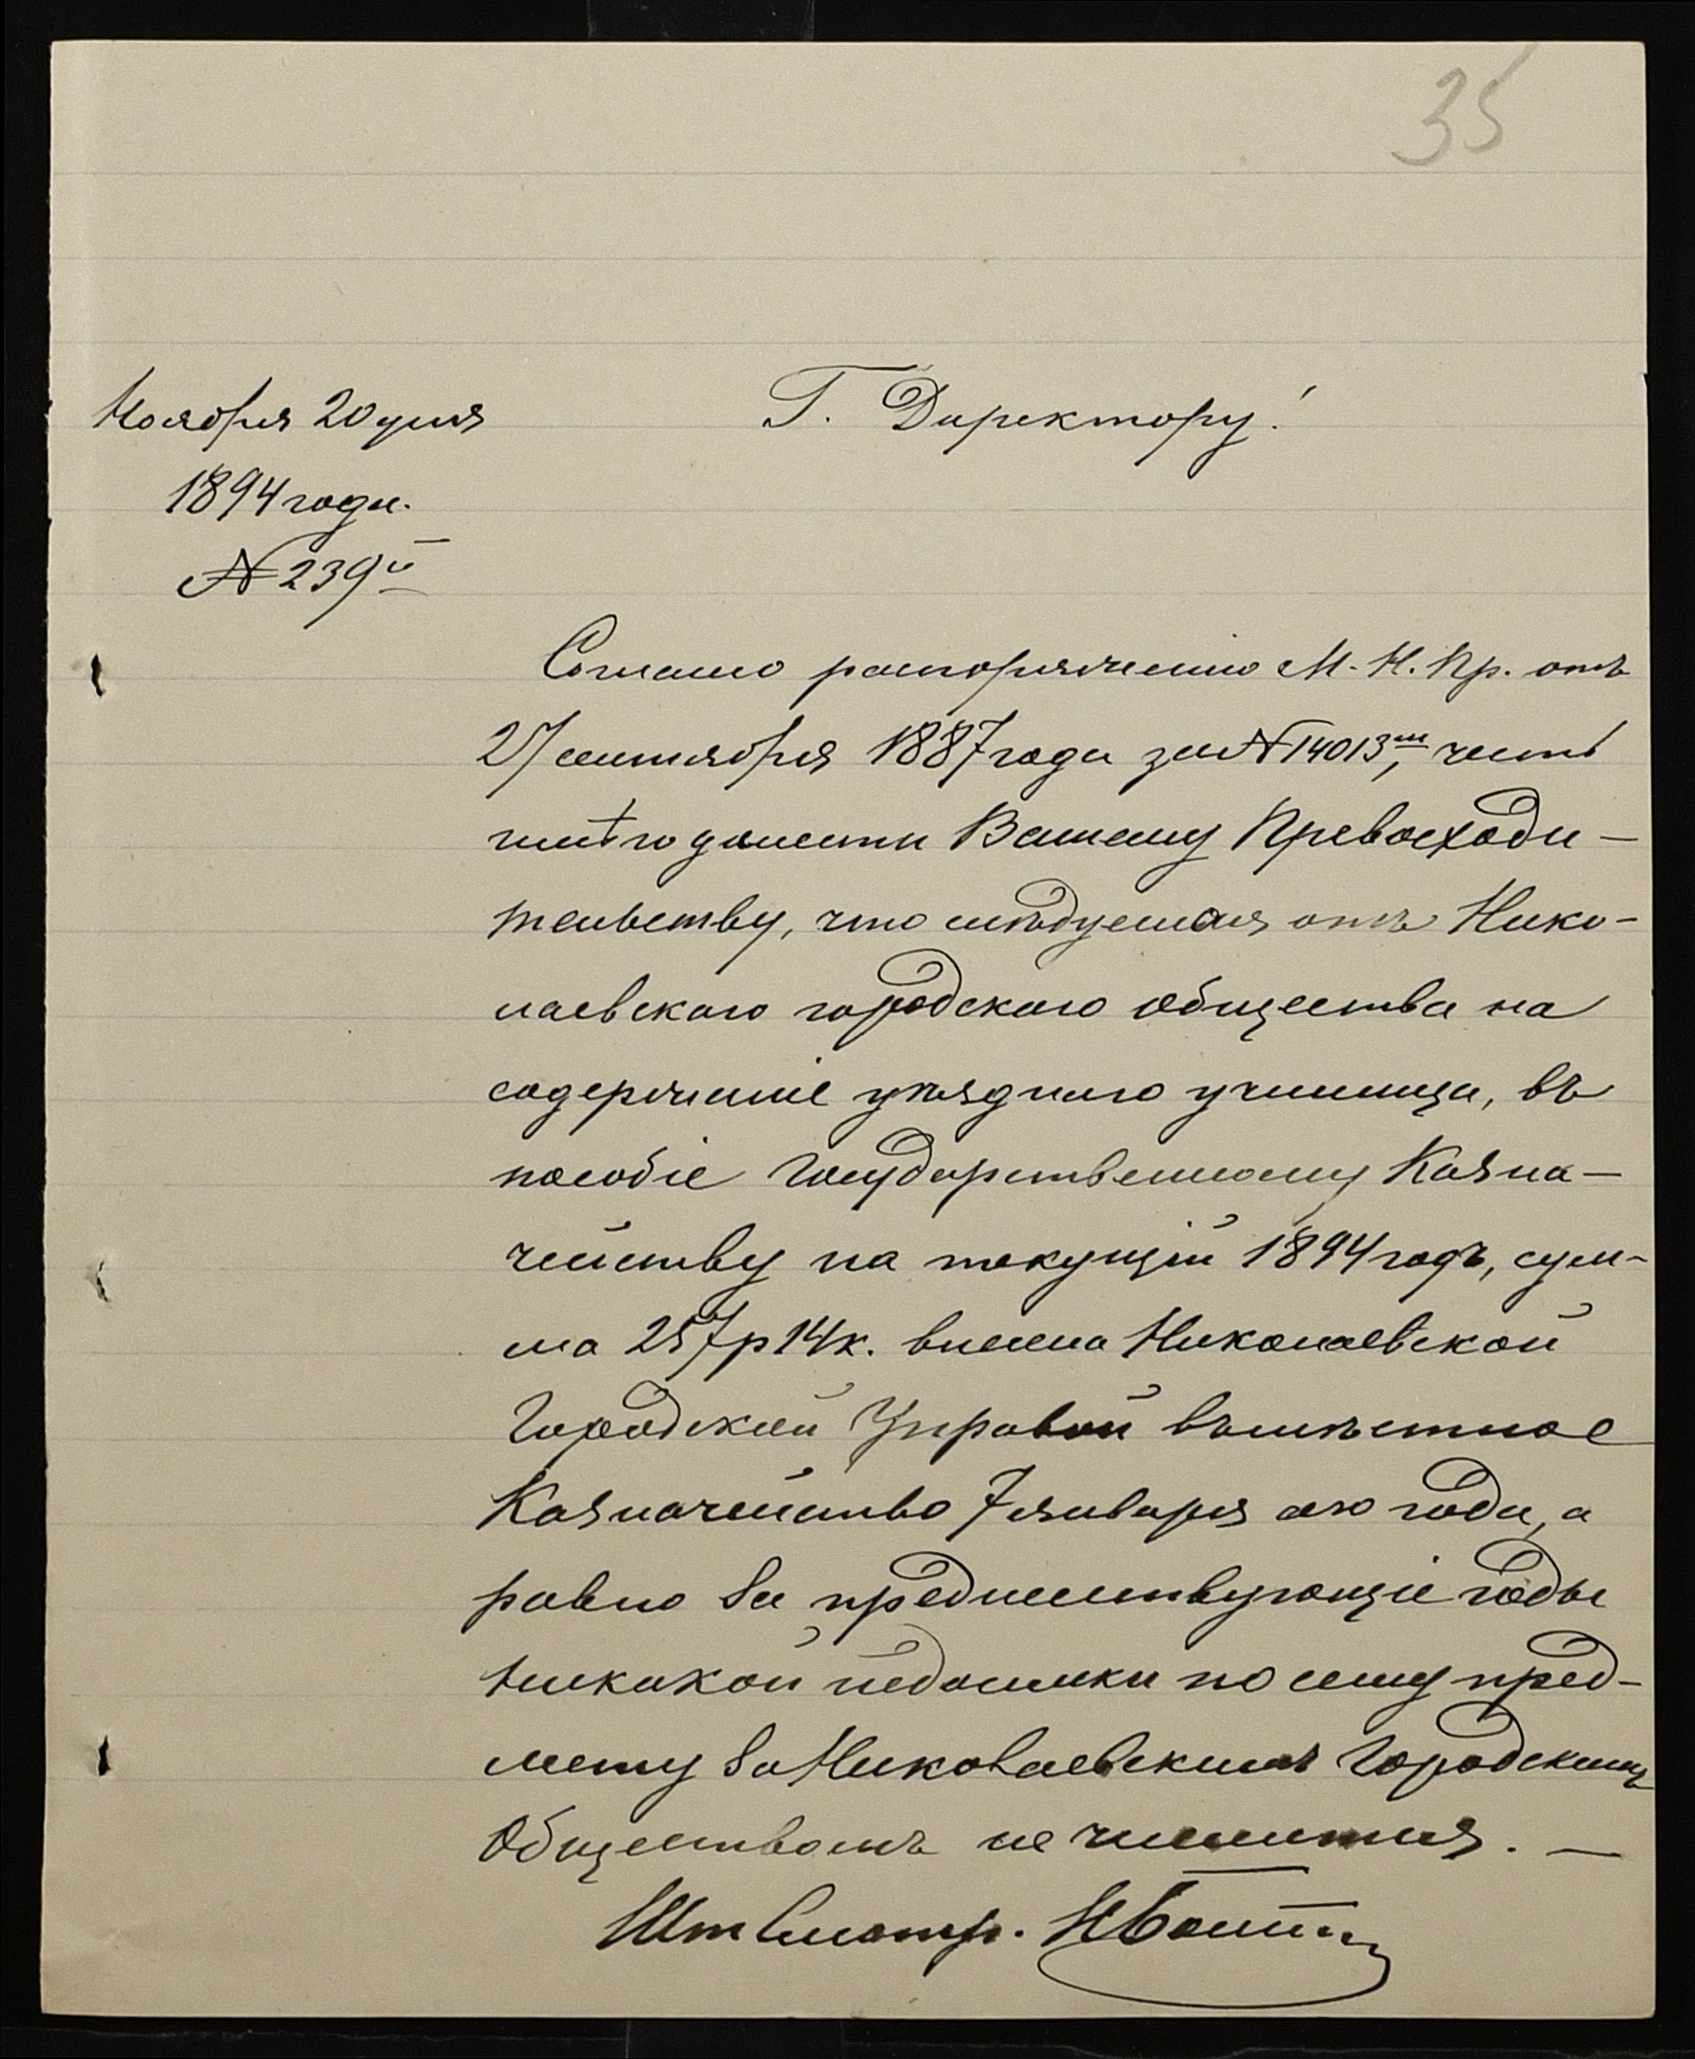 35
Ноября 20 дня
1894 года.
№ 239й
Г. Директору!
Согласно распоряженію М. Н. Пр. отъ
27 сентября 1887 года за № 14013ш, честь
имѣю донести Вашему Превосходи-
тельству, что слѣдуемая отъ Нико-
лаевскаго городского общества на
содержаніе уѣзднаго училища, въ
пособіе Государственному Казна-
чейству на текущій 1894 годъ, сум-
ма 257 р 14 к. внесена Николаевской
Городской Управой въ мѣстное
Казначейство 7 января сего года, а
равно за предшествующіе годы
никакой недоимки по сему пред-
мету за Николаевскимъ Городскимъ
Обществомъ не числится. —
Шт Смотр.